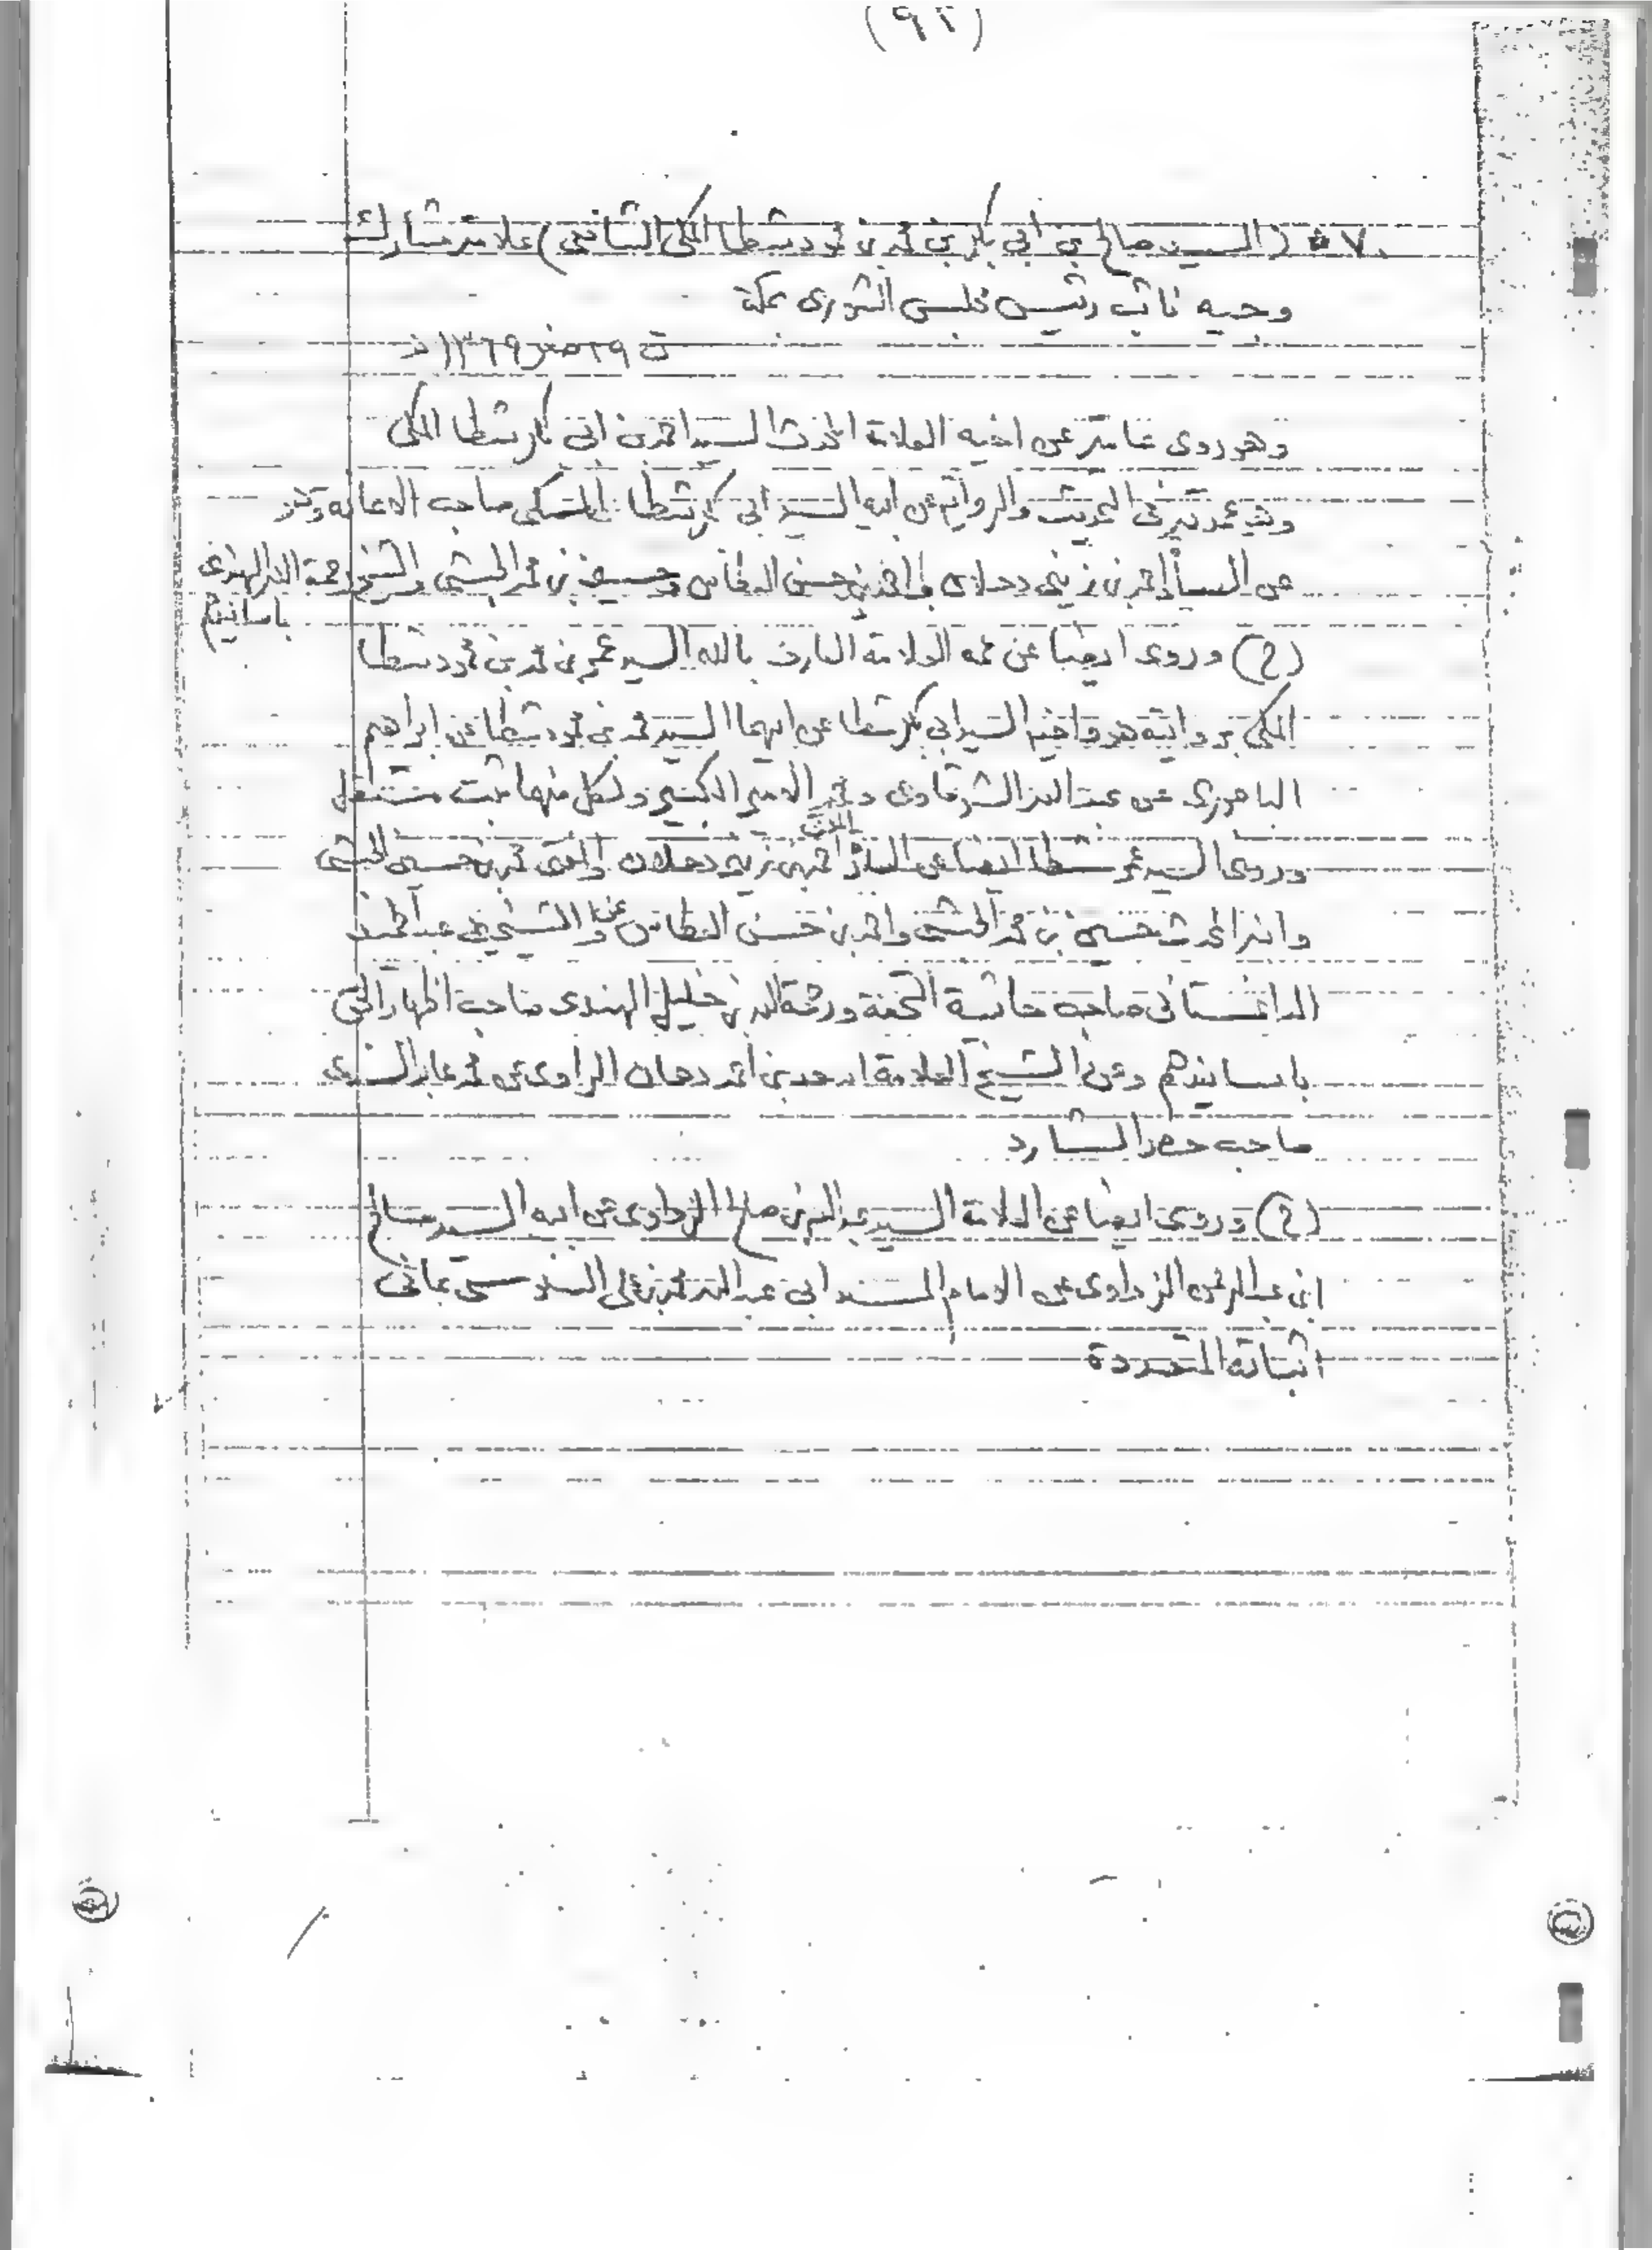 (٩٢)
(السيد صالح بن أبي بكر بن محمد بن محمود شطا المكي الشافعي) علامة مشارك
وجيه نائب رئيس مجلس الشورى بمكة
ت ٢٩ صفر ١٣٦٩
وهو روى عامة عن اخيه العلامة المحدث السيد احمد بن ابى بكر شطا المكى
وهو عمدته فى التحديث والرواية عن ابيه السيد ابى بكر شطا المكى صاحب الاعانة
عن السيد احمد بن زينى دحلان واحمد بن حسن العطاس وحسين بن محمد الحبشى والشيخ رحمة الله الهندى
باسانيدهم
(ح) وروى ايضا عن عمه العلامة العارف بالله السيد عمر بن محمد بن محمود شطا
المكى بروايته هو واخيه السيد ابى بكر شطا عن ابيهما السيد محمد بن محمود شطا عن ابراهيم
الباجورى عن عبد الله الشرقاوى ومحمد الامير الكبير ولكل منهما ثبت مستقل
وروى السيد عمر شطا ايضا عن السيد احمد بن زينى دحلان والمفتى محمد بن حسين الحبشى
وابنه المحدث حسين بن محمد الحبشى واحمد بن حسن العطاس وعن الشيخين عبد الحميد
الداغستانى صاحب حاشية التحفة ورحمة الله بن خليل الهندى صاحب اظهار الحق
باسانيدهم وعن الشيخ العلامة اسعد بن احمد دهان الراوى عن محمد عابد السندى
صاحب حصر الشارد
(ح) وروى ايضا عن العلامة السيد عبد الله بن صالح الزواوى عن ابيه السيد صالح
ابن عبد الرحمن الزواوى عن الامام المسند ابى عبد الله محمد بن على السنوسى بما فى
اثباته المتعددة